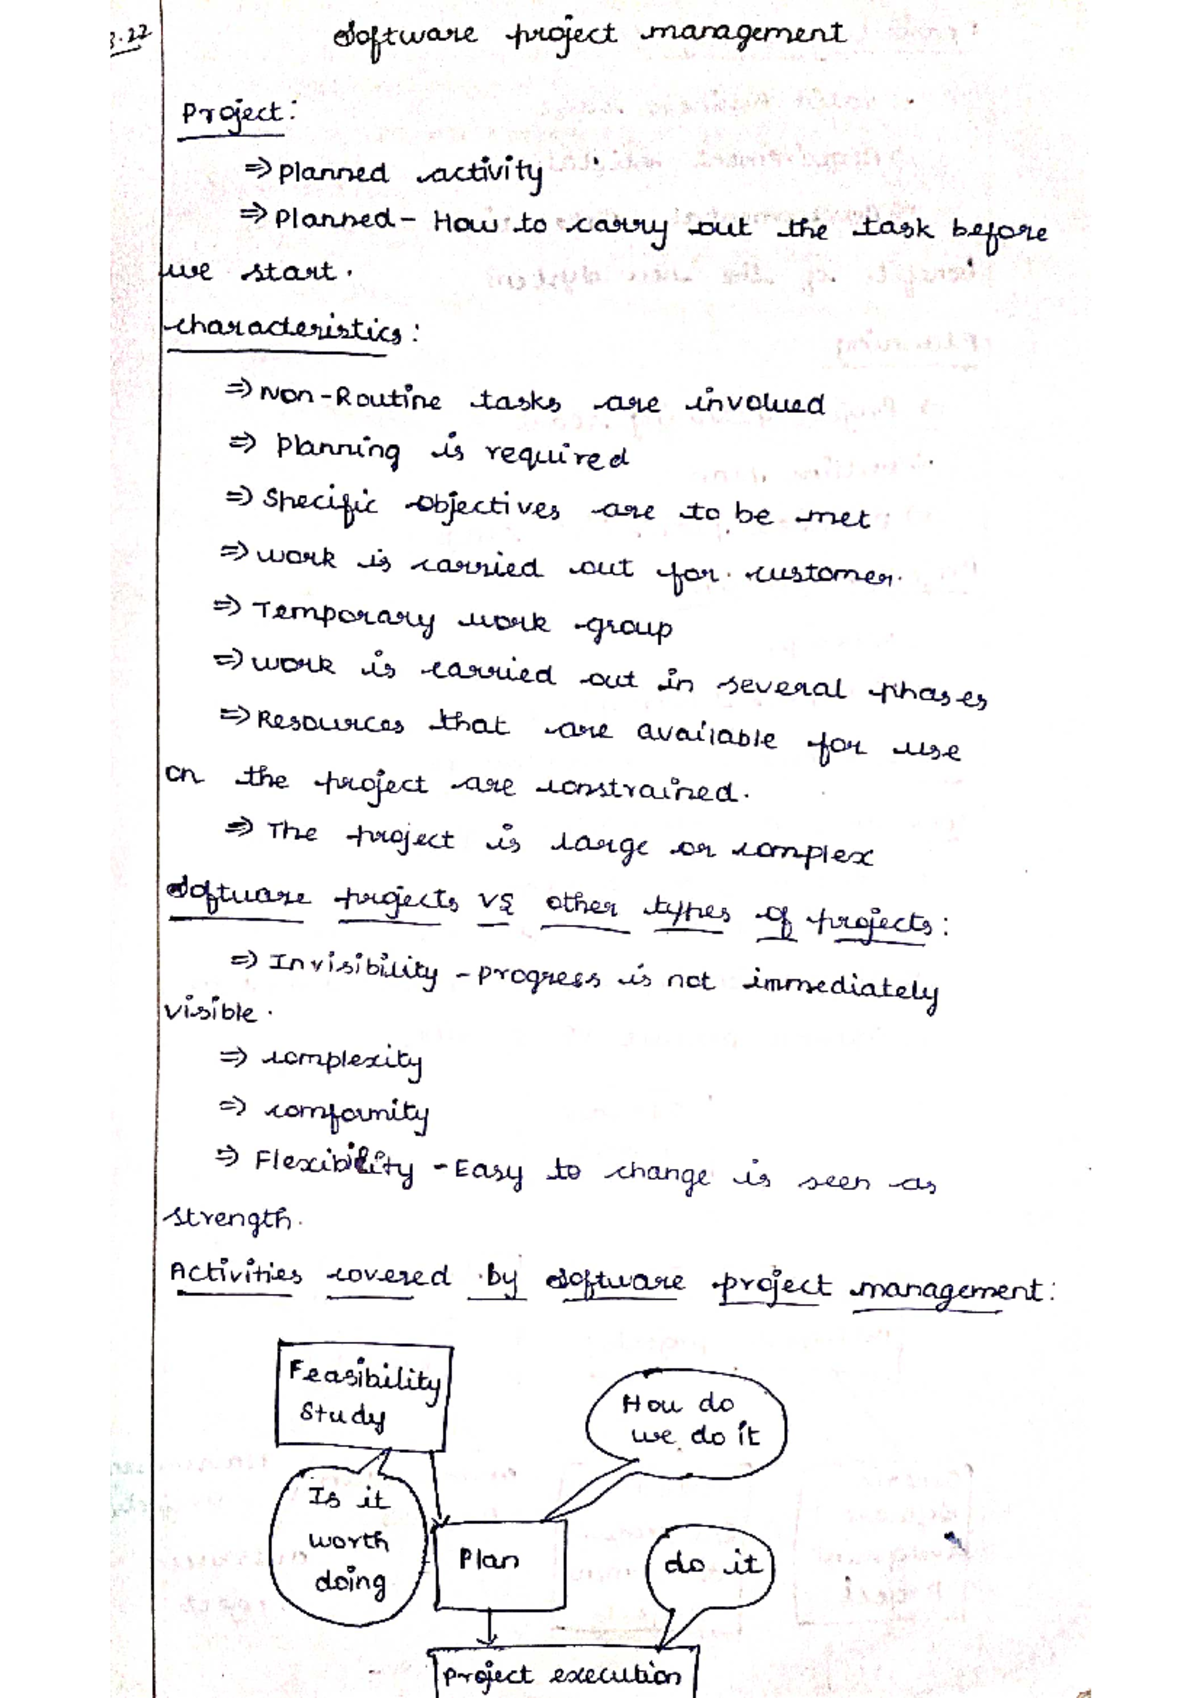 3.22
Software project management
Project:
⇒ Planned activity
⇒ Planned - How to carry out the task before
we start.
characteristics:
⇒ Non-Routine tasks are involved
⇒ Planning is required
⇒ Specific objectives are to be met
⇒ work is carried out for customer.
⇒ Temporary work group
⇒ work is carried out in several phases
⇒ Resources that are available for use
on the project are constrained.
⇒ The project is large or complex
Software projects vs other types of projects:
⇒ Invisibility - progress is not immediately
visible.
⇒ complexity
⇒ comformity
⇒ Flexibility - Easy to change is seen as
strength.
Activities covered by software project management:
Feasibility
Study
How do
we do it
Is it
worth
doing
Plan
do it
Project execution